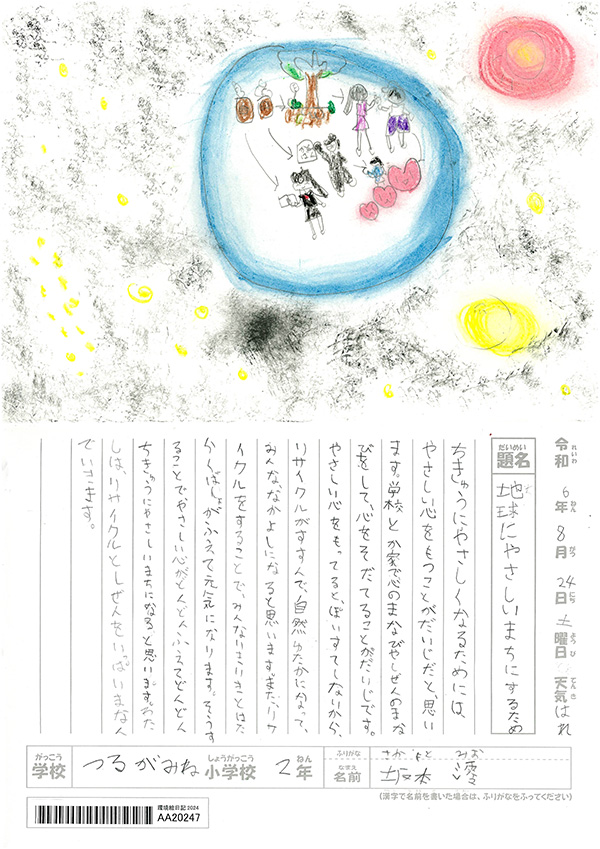 令和 6年 8月 24日 土曜日 天気 はれ
れいわ ねん がつ にち よう び てんき
だいめい
題名 地球にやさしいまちにするため
ちきゅうにやさしくなるためには、
やさしい心をもつことがだいじだと、思い
ます。学校とか家で心のまなびやしぜんのまな
びをして、心をそだてることがだいじです。
やさしい心をもってると、ぽいすてしないから、
リサイクルがすすんで、自然ゆたかになって、
みんななかよしになると思います。また、リサ
イクルをすることで、みんな
らくばしょがふえて元気になります。そうす
ることでやさしい心がどんどんふえてどんどん
ちきゅうにやさしいまちになると思います。わた
しは、リサイクルとしぜんをいっぱいまなん
でいきます。
がっこう 学校 つるがみね 小学校 しょうがっこう 2年 ねん
ふりがな さかもと みお
なまえ 名前 坂本
(漢字で名前を書いた場合は、ふりがなをふってください)
環境絵日記2024
AA20247